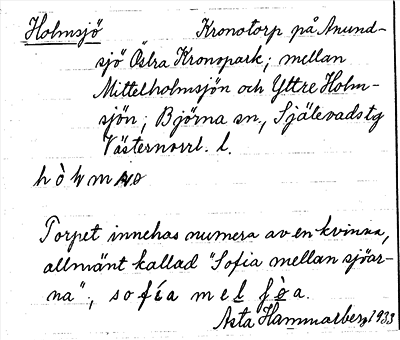 Holmsjö Kronotorp på Anund-
sjö Östra Kronopark; mellan
Mittelholmsjön och Yttre Holm-
sjön; Björna sn., Själevads tg
Västernorrl. l.
Torpet innehas numera av en kvinna,
allmänt kallad "Sofia mellan sjöar-
na"., sofía mel fòa.
Asta Hammarberg 1933